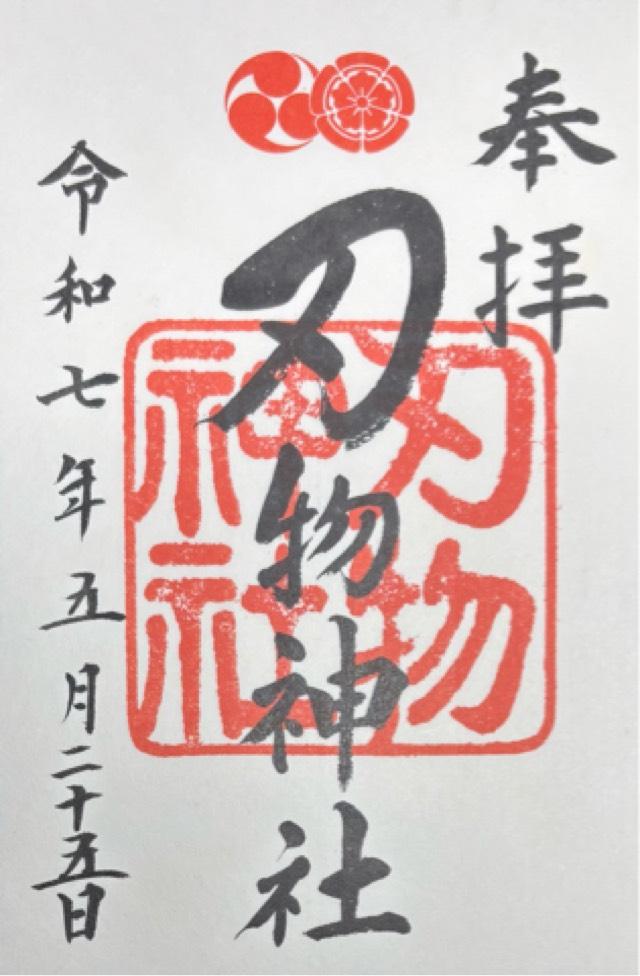 奉拝
刃物神社
刃物
神社
令和七年五月二十五日